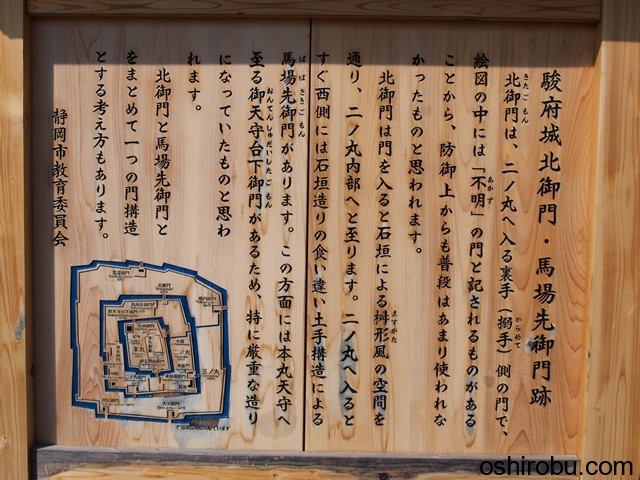 駿府城北御門・馬場先御門跡
北御門は、二ノ丸へ入る裏手（搦手）側の門で、
絵図の中には「不明」の門と記されるものがある
ことから、防御上からも普段はあまり使われな
かったものと思われます。
北御門は門を入ると石垣による枡形風の空間を
通り、二ノ丸内部へと至ります。二ノ丸へ入ると
すぐ西側には石垣造りの食い違い土手構造による
馬場先御門があります。この方面には本丸天守へ
至る御天守台下御門があるため、特に厳重な造り
になっていたものと思わ
れます。
北御門と馬場先御門と
をまとめて一つの門構造
とする考え方もあります。
静岡市教育委員会
きたごもん
からめて
あかず
ますがた
ばばさきごもん
おんてんしゅだいしたごもん
本丸
二ノ丸
三ノ丸
oshirobu.com